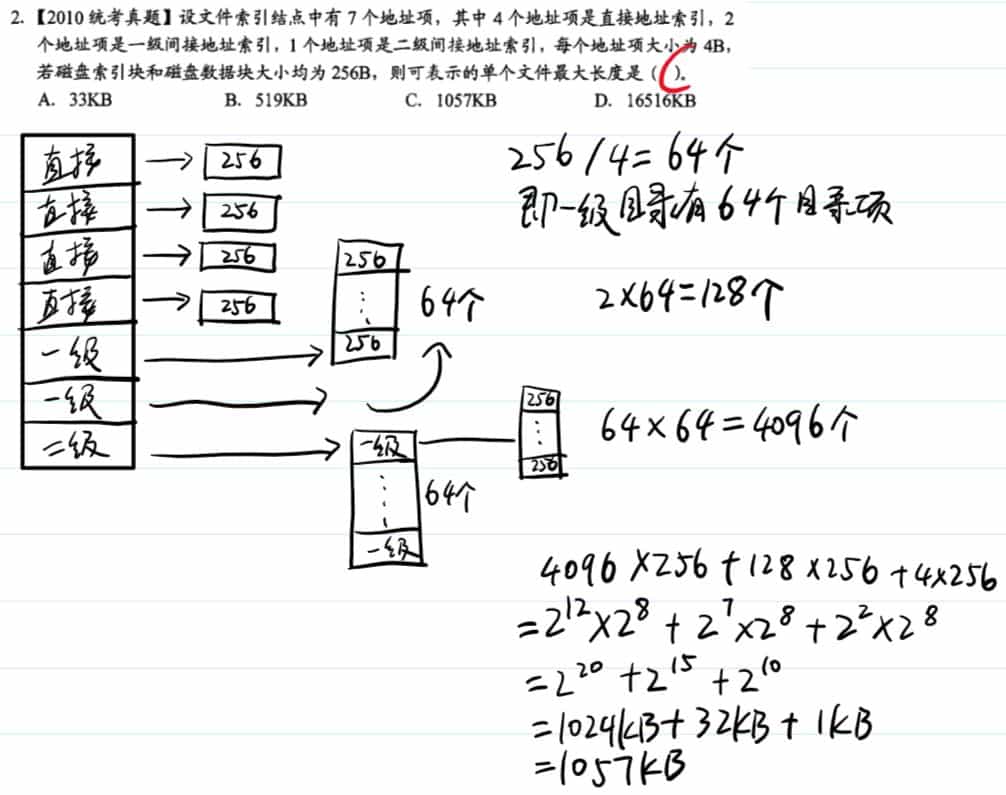 2.【2010 统考真题】设文件索引结点中有 7 个地址项，其中 4 个地址项是直接地址索引，2
个地址项是一级间接地址索引，1 个地址项是二级间接地址索引，每个地址项大小为 4B，
若磁盘索引块和磁盘数据块大小均为 256B，则可表示的单个文件最大长度是（C）。
A. 33KB B. 519KB C. 1057KB D. 16516KB
直接 256
直接 256
直接 256
直接 256
一级
一级
二级
256
⋮
256
64个
一级
⋮
一级
64个
256
⋮
256
256/4=64个
即一级目录有64个目录项
2×64=128个
64×64=4096个
4096×256+128×256+4×256
=2¹²×2⁸+2⁷×2⁸+2²×2⁸
=2²⁰+2¹⁵+2¹⁰
=1024KB+32KB+1KB
=1057KB